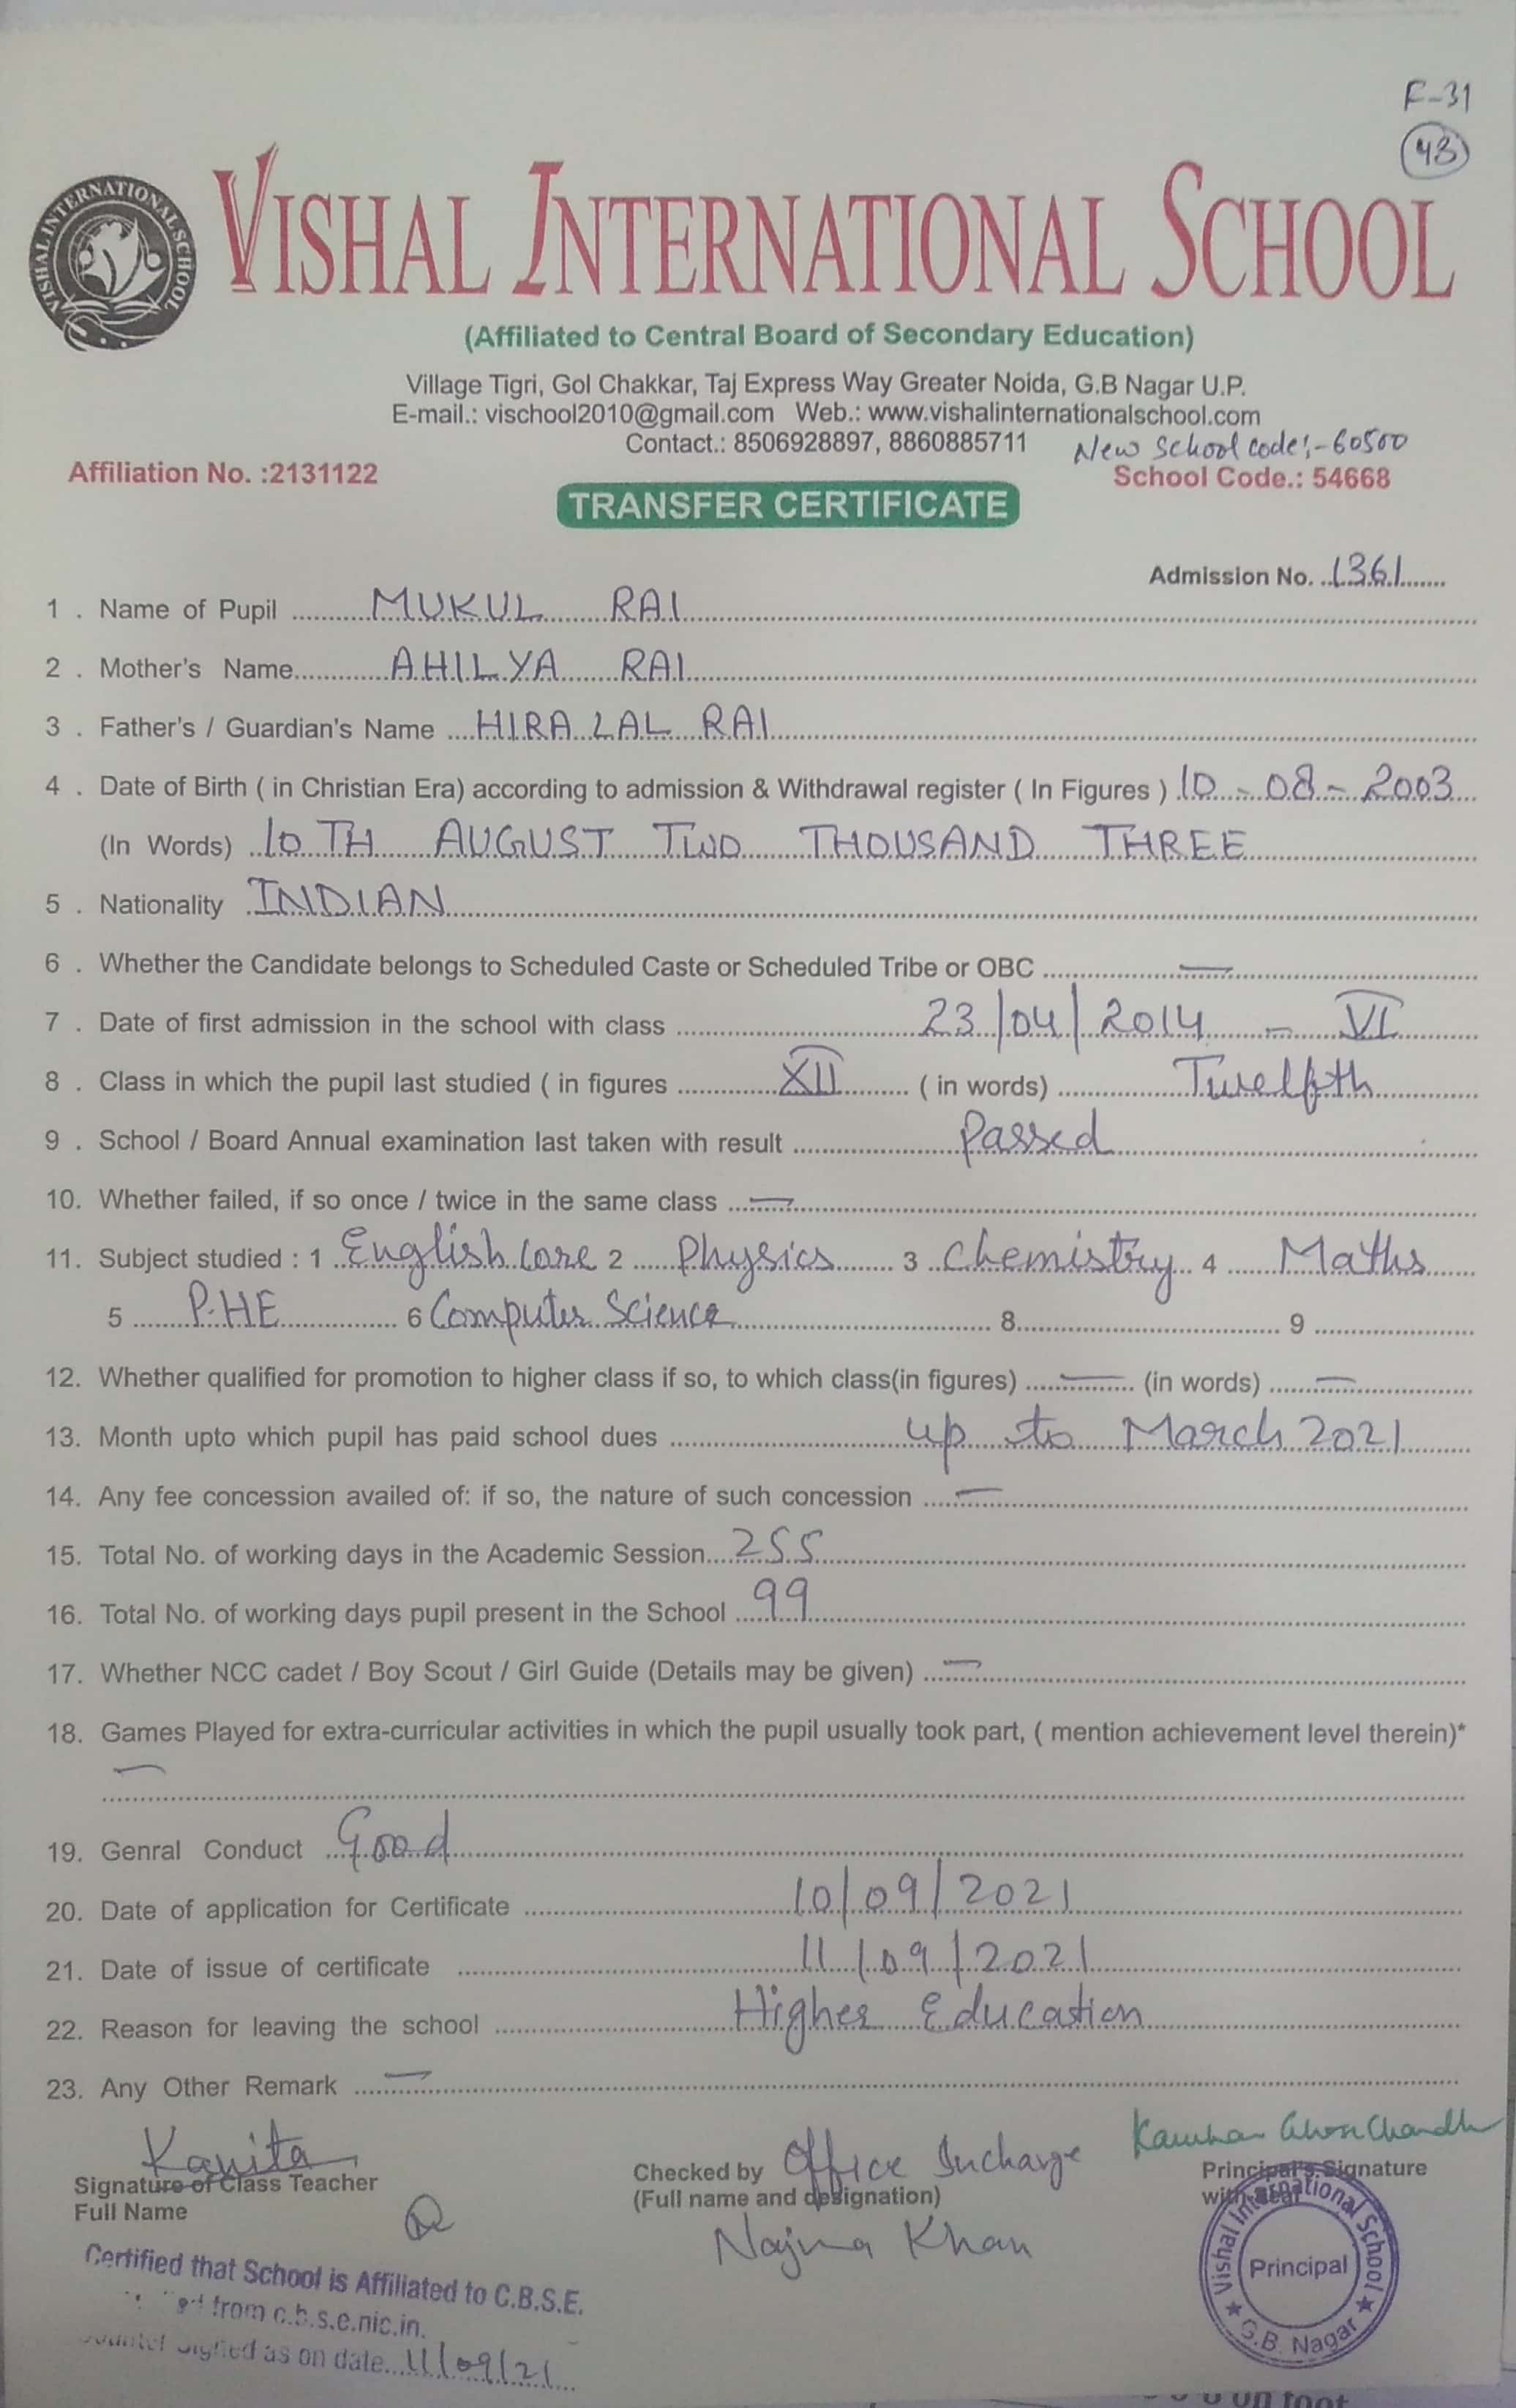 F-31
43
VISHAL INTERNATIONAL SCHOOL
VISHAL INTERNATIONAL SCHOOL
(Affiliated to Central Board of Secondary Education)
Village Tigri, Gol Chakkar, Taj Express Way Greater Noida, G.B Nagar U.P.
E-mail.: vischool2010@gmail.com Web.: www.vishalinternationalschool.com
Contact.: 8506928897, 8860885711 New School code:- 60500
Affiliation No. :2131122 School Code.: 54668
TRANSFER CERTIFICATE
Admission No. 1361
1 . Name of Pupil MUKUL RAI
2 . Mother's Name AHILYA RAI
3 . Father's / Guardian's Name HIRA LAL RAI
4 . Date of Birth ( in Christian Era) according to admission & Withdrawal register ( In Figures ) 10 - 08 - 2003
(In Words) 10 TH AUGUST TWO THOUSAND THREE
5 . Nationality INDIAN
6 . Whether the Candidate belongs to Scheduled Caste or Scheduled Tribe or OBC —
7 . Date of first admission in the school with class 23/04/2014 - VI
8 . Class in which the pupil last studied ( in figures XII ( in words) Twelfth
9 . School / Board Annual examination last taken with result Passed
10. Whether failed, if so once / twice in the same class —
11. Subject studied : 1 English Core 2 Physics 3 Chemistry 4 Maths
5 P.HE 6 Computer Science 8 9
12. Whether qualified for promotion to higher class if so, to which class(in figures) — (in words) —
13. Month upto which pupil has paid school dues up to March 2021
14. Any fee concession availed of: if so, the nature of such concession —
15. Total No. of working days in the Academic Session 255
16. Total No. of working days pupil present in the School 99
17. Whether NCC cadet / Boy Scout / Girl Guide (Details may be given) —
18. Games Played for extra-curricular activities in which the pupil usually took part, ( mention achievement level therein)*
—
19. Genral Conduct Good
20. Date of application for Certificate 10/09/2021
21. Date of issue of certificate 11/09/2021
22. Reason for leaving the school Higher Education
23. Any Other Remark —
Kavita
Signature of Class Teacher
Full Name
Checked by Office Incharge
(Full name and designation)
Najma Khan
Principal's Signature
with Seal
Vishal International School
Principal
G.B. Nagar
Certified that School is Affiliated to C.B.S.E.
from c.b.s.e.nic.in.
Signed as on date 11/09/21
on foot